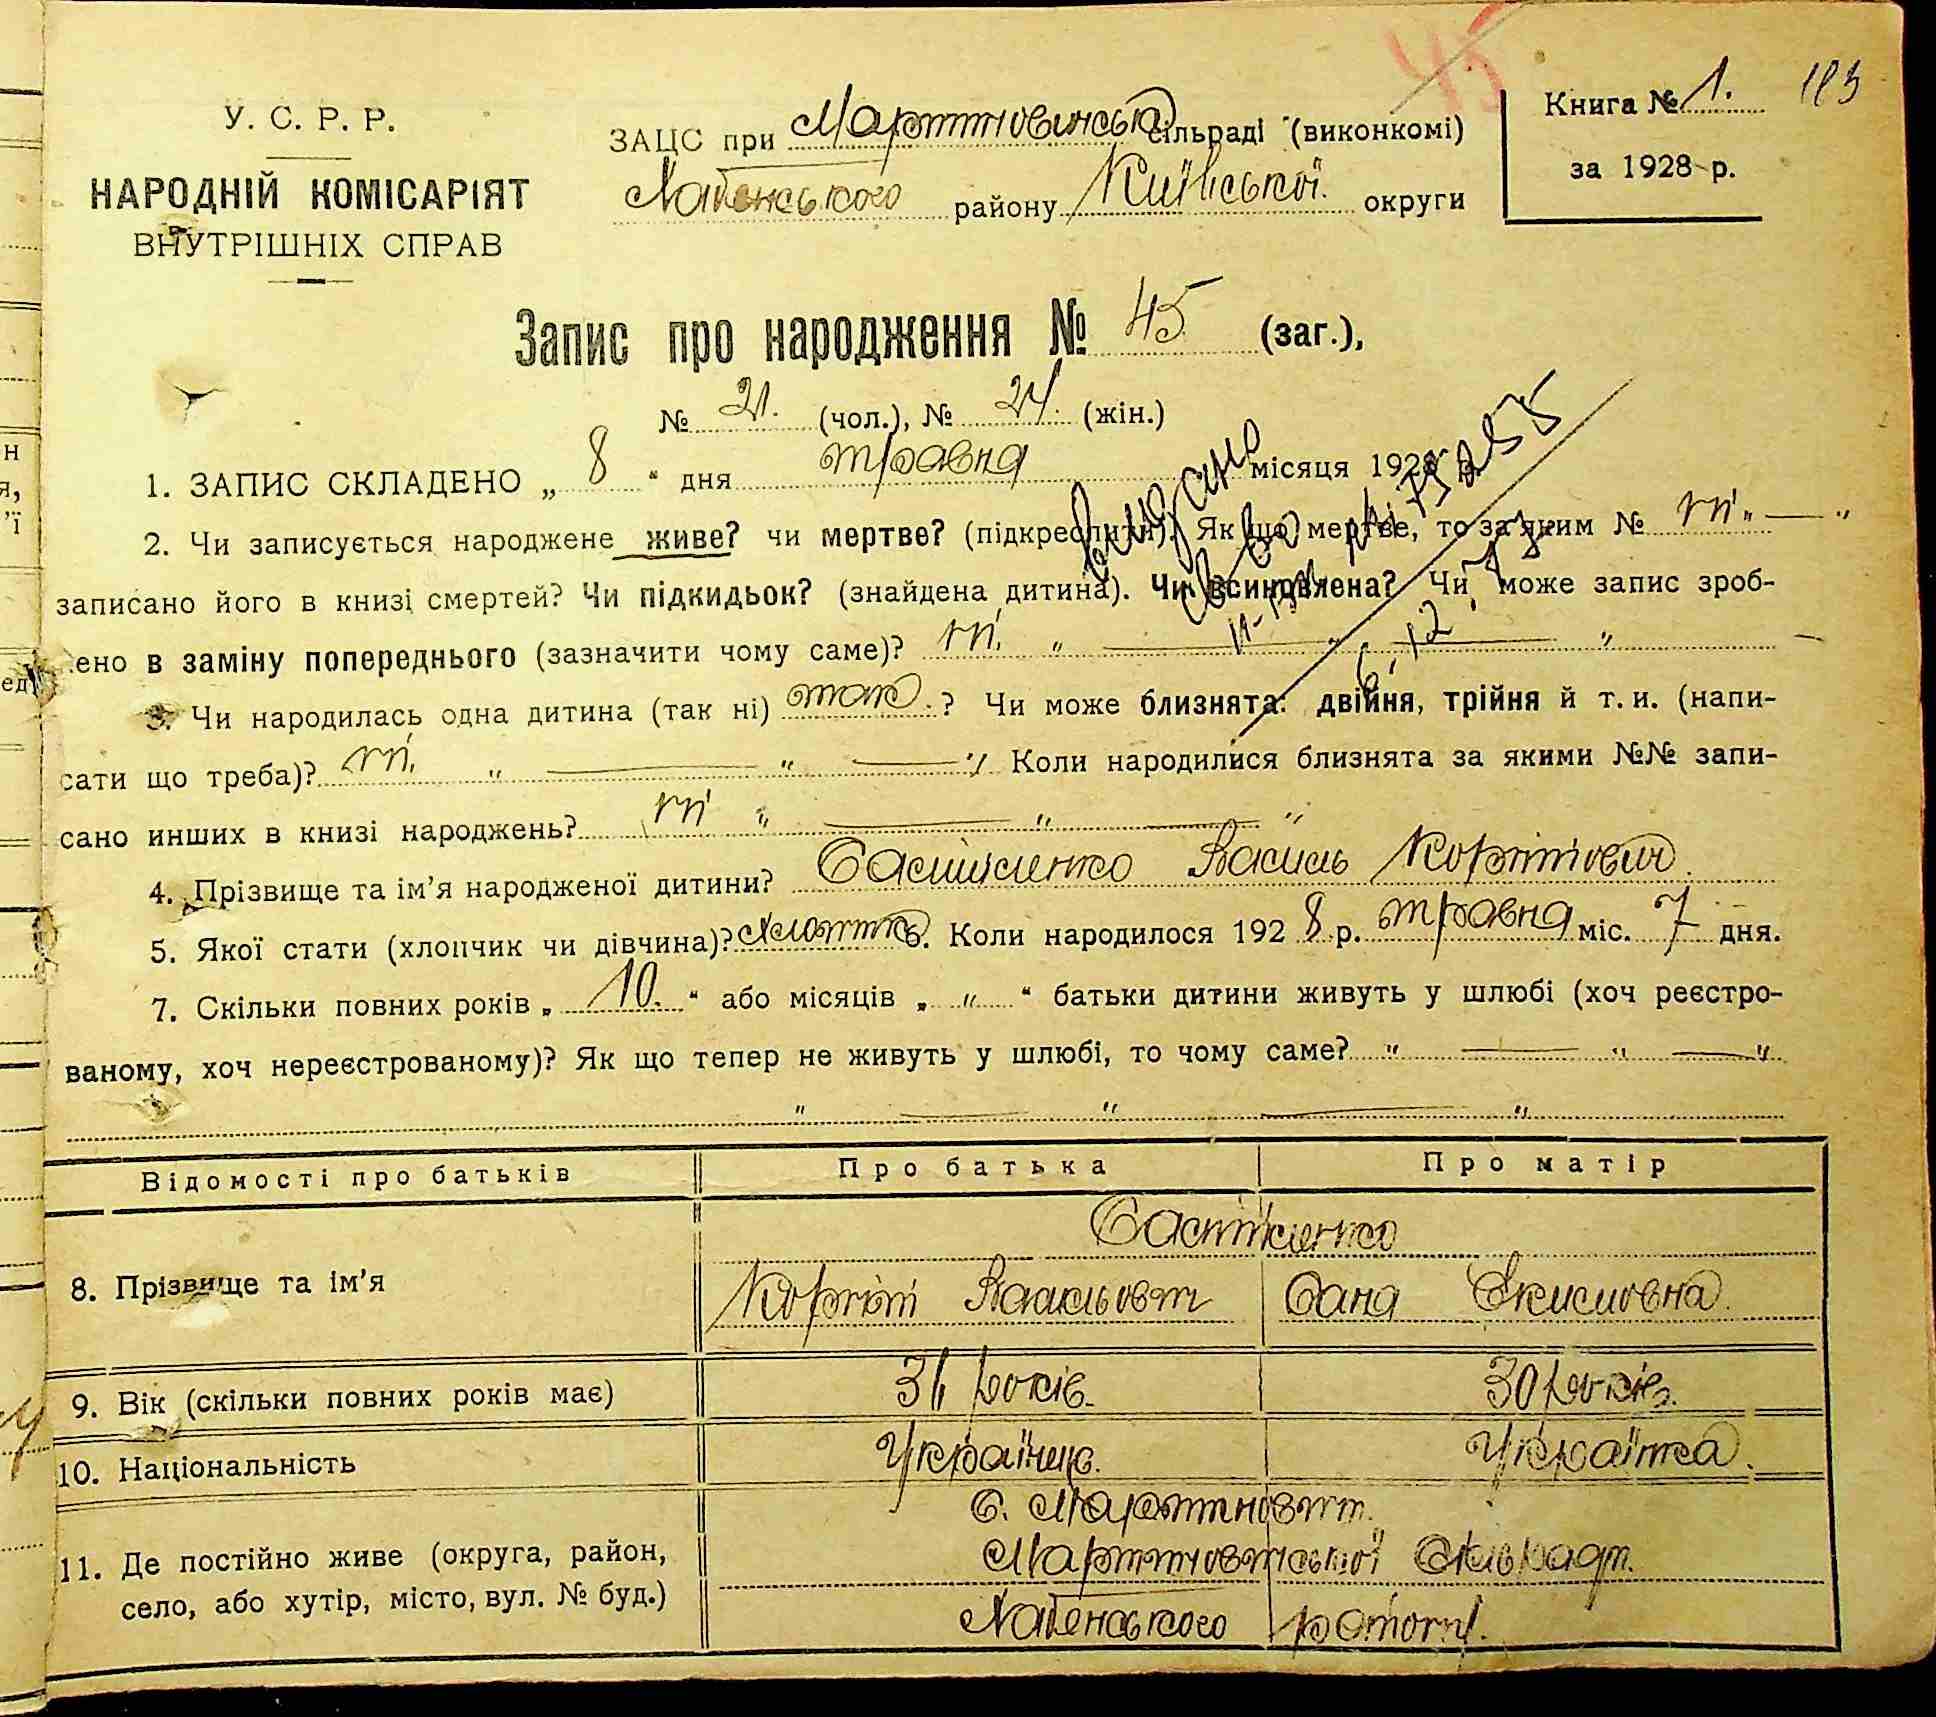 45
Книга № 1. 183
за 1928 р.
У. С. Р. Р.
НАРОДНІЙ КОМІСАРІЯТ
ВНУТРІШНІХ СПРАВ
ЗАЦС при Мартиновській сільраді (виконкомі)
району Київської округи
Запис про народження № 45 (заг.),
№ 21. (чол.), № 24. (жін.)
1. ЗАПИС СКЛАДЕНО „ 8 “ дня травня місяця 1928 р.
2. Чи записується народжене живе? чи мертве? (підкреслити). Як що мертве, то за яким № ні „ — “
записано його в книзі смертей? Чи підкидьок? (знайдена дитина). Чи всиновлена? Чи може запис зроб-
лено в заміну попереднього (зазначити чому саме)? ні. „ — „ — „ —
3. Чи народилась одна дитина (так ні) так. ? Чи може близнята: двійня, трійня й т. и. (напи-
сати що треба)? ні. „ — „ — „ Коли народилися близнята за якими №№ запи-
сано инших в книзі народжень? ні „ — „ — „
4. Прізвище та ім’я народженої дитини? Василь
5. Якої стати (хлопчик чи дівчина)? Коли народилося 1928 р. травня міс. 7 дня.
7. Скільки повних років „ 10. “ або місяців „ „ “ батьки дитини живуть у шлюбі (хоч реєстро-
ваному, хоч нереєстрованому)? Як що тепер не живуть у шлюбі, то чому саме? „ — „ — „
„ — „ — „
Видано
6, 12
Відомості про батьків Про батька Про матір
8. Прізвище та ім’я
Васильович
9. Вік (скільки повних років має) 31 років. 30 років.
10. Національність Українець. Українка.
с. Мартиновичі.
11. Де постійно живе (округа, район, село, або хутір, місто, вул. № буд.) Мартиновицької сільради.
району.